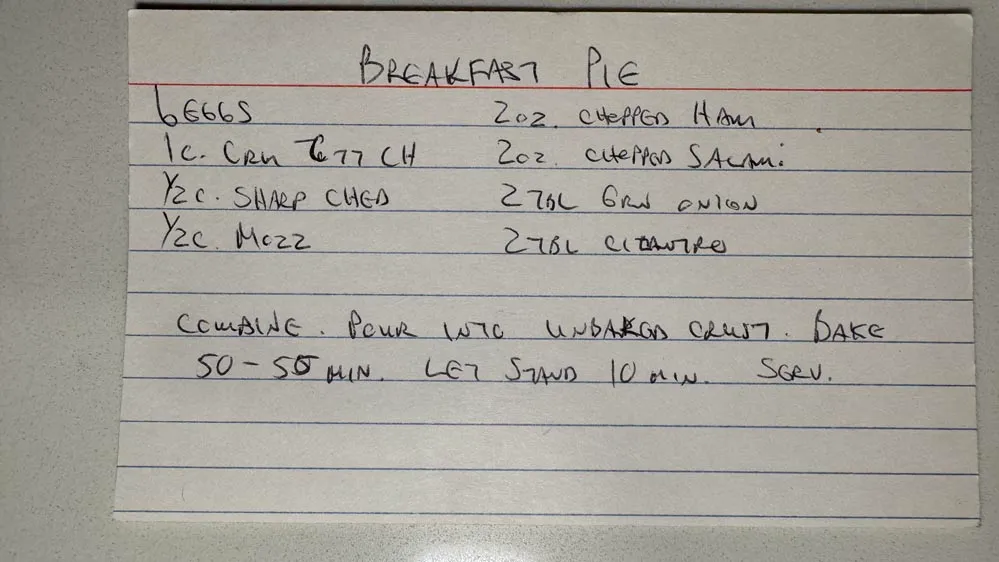 BREAKFAST PIE
6 EGGS
1C. CRM COTT CH
1/2 C. SHARP CHED
1/2 C. MOZZ
2 OZ. CHOPPED HAM
2 OZ. CHOPPED SALAMI
2 TBL GRN ONION
2 TBL CILANTRO
COMBINE. POUR INTO UNBAKED CRUST. BAKE
50-55 MIN. LET STAND 10 MIN. SERV.